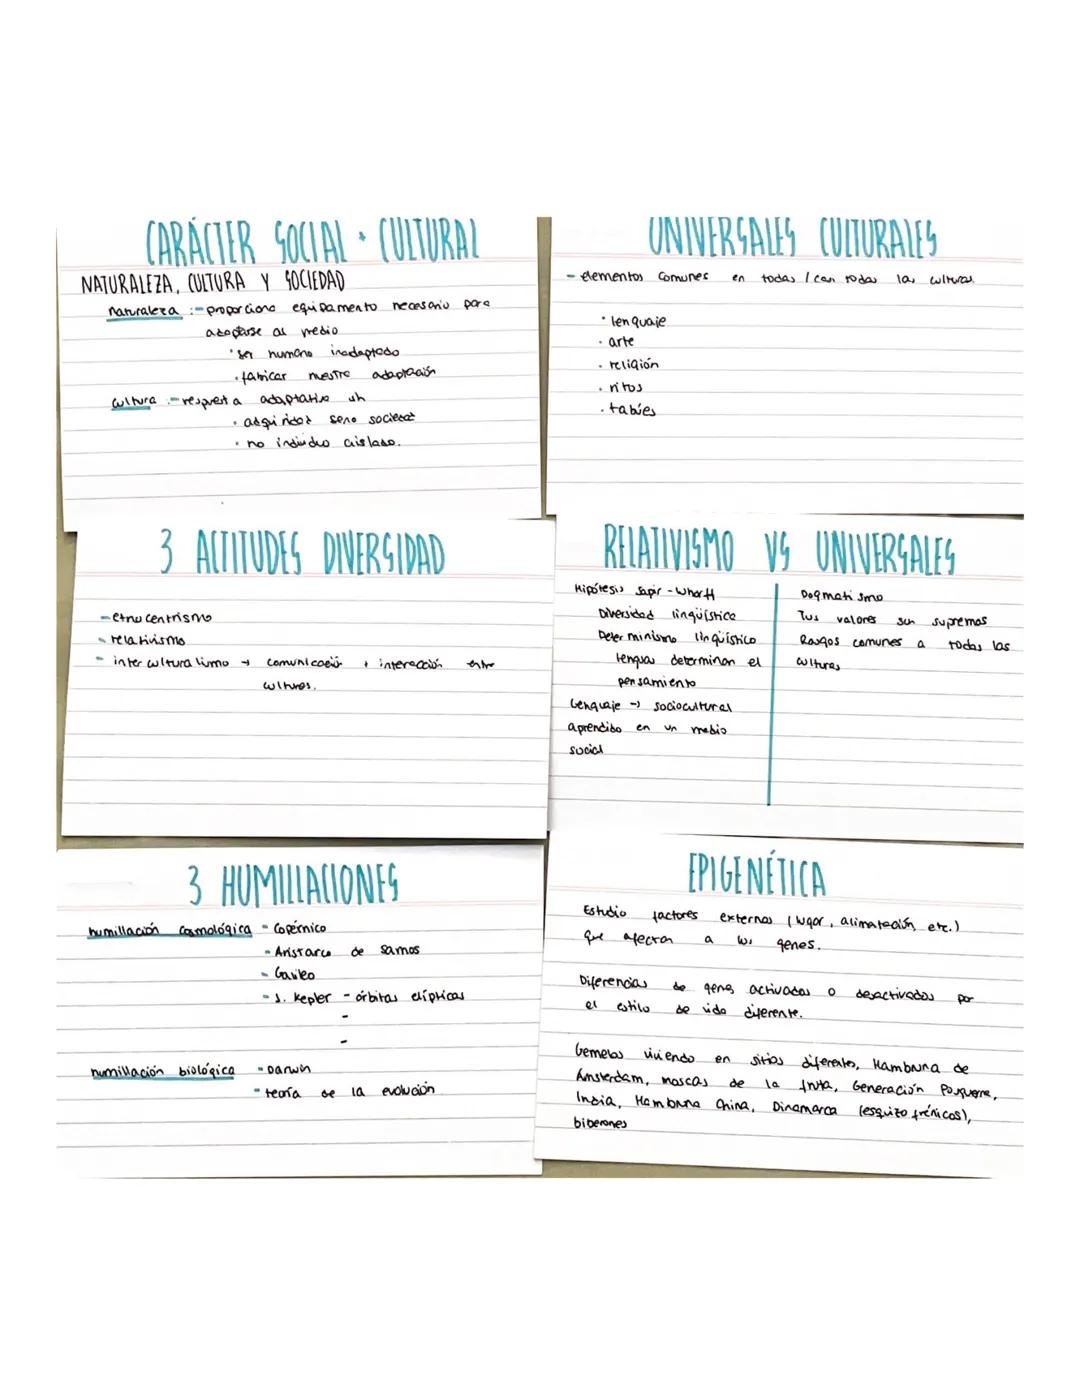 CARÁCTER SOCIAL + CULTURAL
NATURALEZA, CULTURA Y SOCIEDAD
naturaleza :- proporciona equipamento necesario para
adaptarse al medio
· ser humano inadaptado
· fabricar nuestra adaptación
cultura :- respuesta adaptativa sh
· adquiridos seno sociedad
· no individuo aislado.
UNIVERSALES CULTURALES
- elementos comunes en todas / can todas las culturas.
· lenguaje
· arte
· religión
· ritos
· tabúes
3 ACTITUDES DIVERSIDAD
- etnocentrismo
- relativismo
- interculturalismo → comunicación + interacción entre
culturas.
RELATIVISMO VS UNIVERSALES
Hipótesis Sapir - Whorff
Diversidad lingüística
Determinismo lingüístico
lenguas determinan el
pensamiento
Lenguaje → sociocultural
aprendido en un medio
social
Dogmatismo
Tus valores son supremos
Rasgos comunes a todas las
culturas
3 HUMILLACIONES
humillación cosmológica - Copérnico
- Aristarco de samos
- Galileo
- J. Kepler - órbitas elípticas
-
-
humillación biológica - Darwin
- teoría de la evolución
EPIGENÉTICA
Estudio factores externos (lugar, alimentación, etc.)
que afectan a los genes.
Diferencias de genes activados o desactivados por
el estilo de vida diferente.
Gemelos viviendo en sitios diferentes, Hambruna de
Amsterdam, moscas de la fruta, Generación Posguerra,
India, Hambruna China, Dinamarca (esquizofrénicos),
biberones